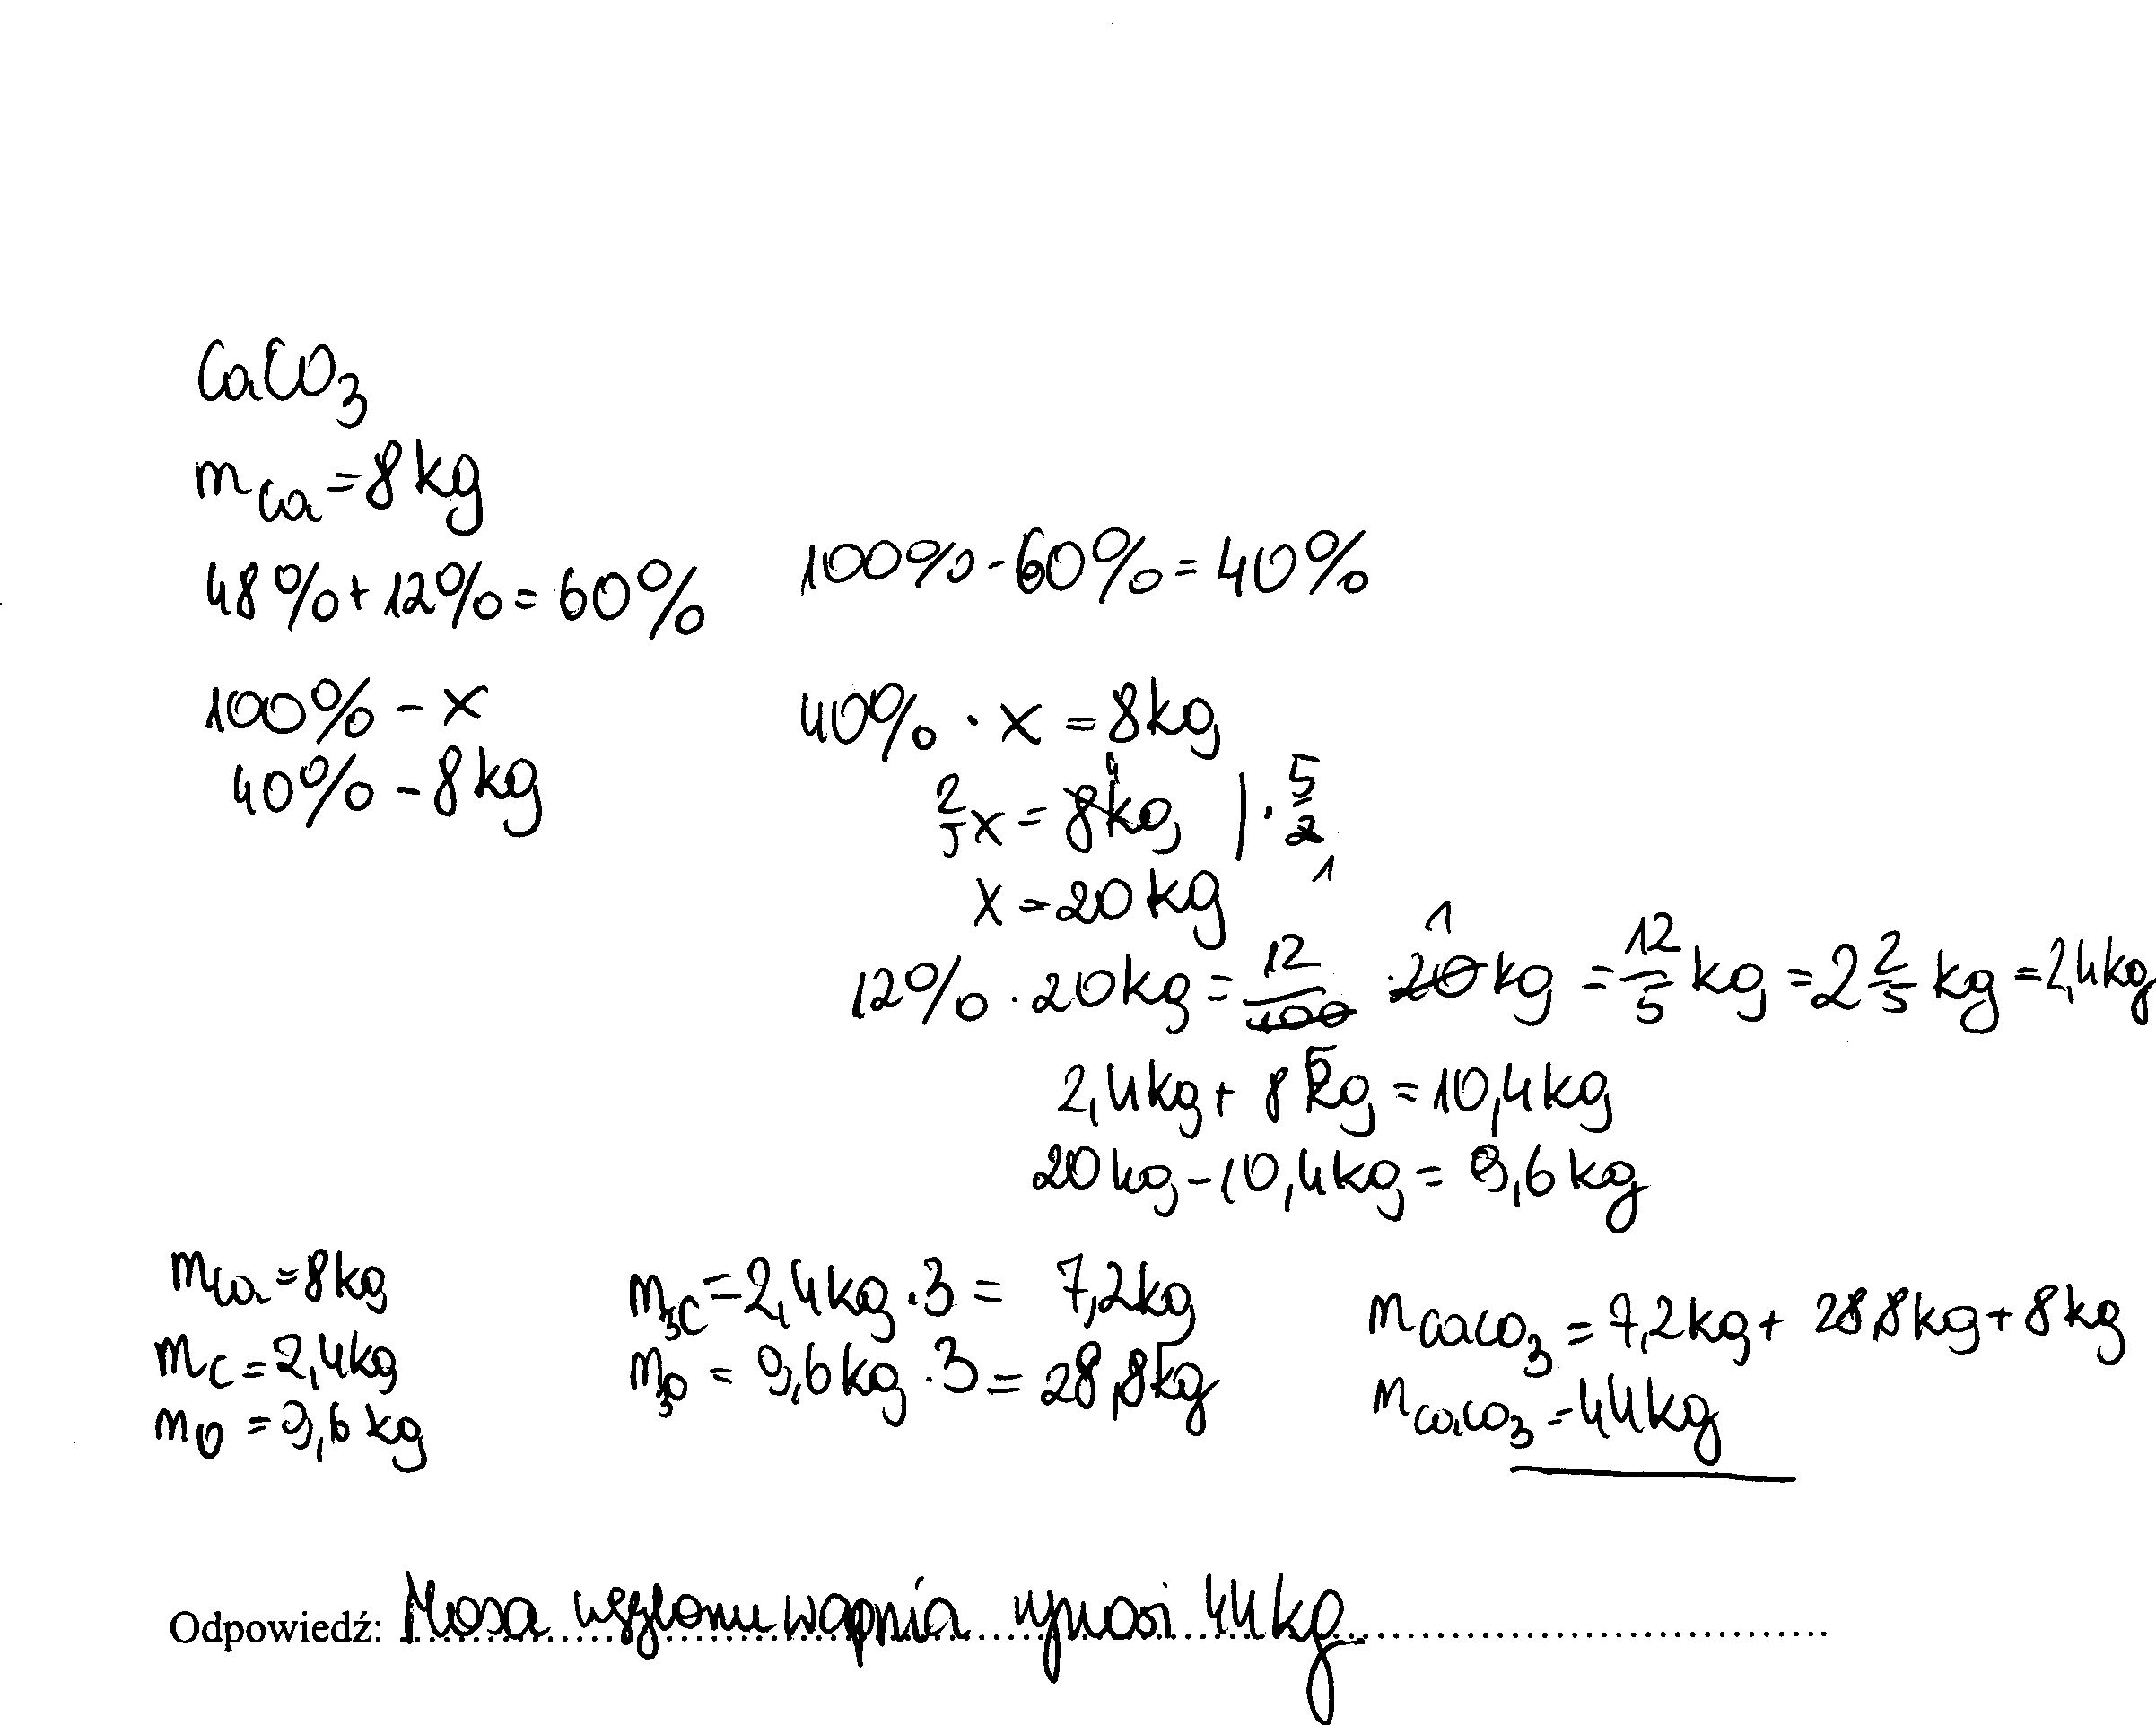 CaCO₃
m Ca = 8 kg
48% + 12% = 60%
100% - 60% = 40%
100% - x
40% - 8 kg
40% · x = 8 kg
2/5 x = 8 kg | · 5/2
4
1
x = 20 kg
1
12% · 20 kg = 12/100 · 20 kg = 12/5 kg = 2 2/5 kg = 2,4 kg
5
2,4 kg + 8 kg = 10,4 kg
20 kg - 10,4 kg = 9,6 kg
m Ca = 8 kg
m C = 2,4 kg
m O = 9,6 kg
m 3C = 2,4 kg · 3 = 7,2 kg
m 3O = 9,6 kg · 3 = 28,8 kg
m CaCO₃ = 7,2 kg + 28,8 kg + 8 kg
m CaCO₃ = 44 kg
Odpowiedź: Masa węglanu wapnia wynosi 44 kg